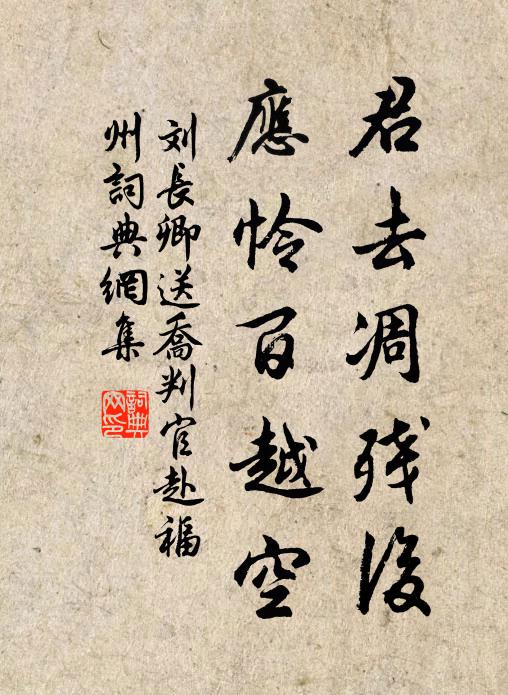 君去凋残後
應怜百越空
刘長卿送喬判官赴福
州詞典網集
詞典
网印